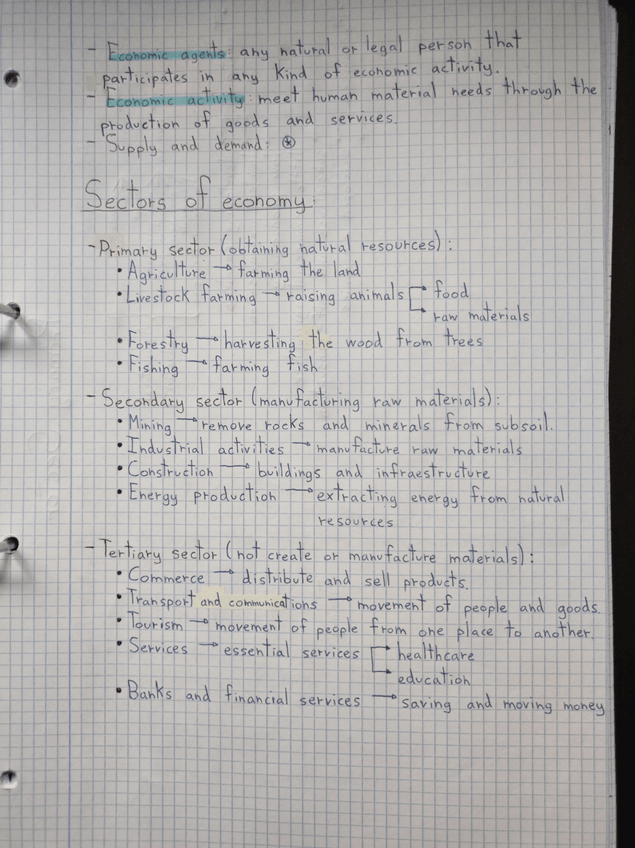 - Economic agents: any natural or legal person that
participates in any kind of economic activity.
- Economic activity: meet human material needs through the
production of goods and services.
- Supply and demand: ⊛
Sectors of economy:
- Primary sector (obtaining natural resources):
• Agriculture → farming the land
• Livestock farming → raising animals → food
→ raw materials
• Forestry → harvesting the wood from trees
• Fishing → farming fish
- Secondary sector (manufacturing raw materials):
• Mining → remove rocks and minerals from subsoil.
• Industrial activities → manufacture raw materials
• Construction → buildings and infraestructure
• Energy production → extracting energy from natural
resources
- Tertiary sector (not create or manufacture materials):
• Commerce → distribute and sell products.
• Transport and communications → movement of people and goods.
• Tourism → movement of people from one place to another.
• Services → essential services → healthcare
→ education
• Banks and financial services → saving and moving money